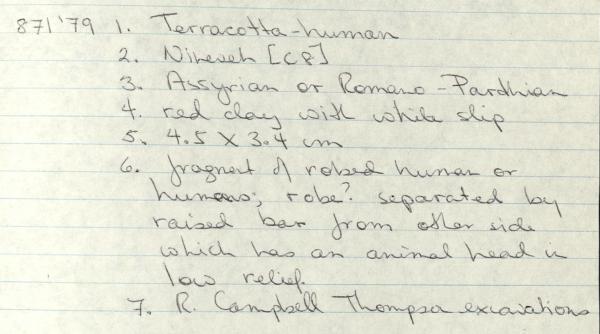 871'79 1. Terracotta-human
2. Nineveh [C8]
3. Assyrian or Romano-Parthian
4. red clay with white slip
5. 4.5 X 3.4 cm
6. fragment of robed human or
humans; robe? separated by
raised bar from other side
which has an animal head in
low relief.
7. R. Campbell Thompson excavations